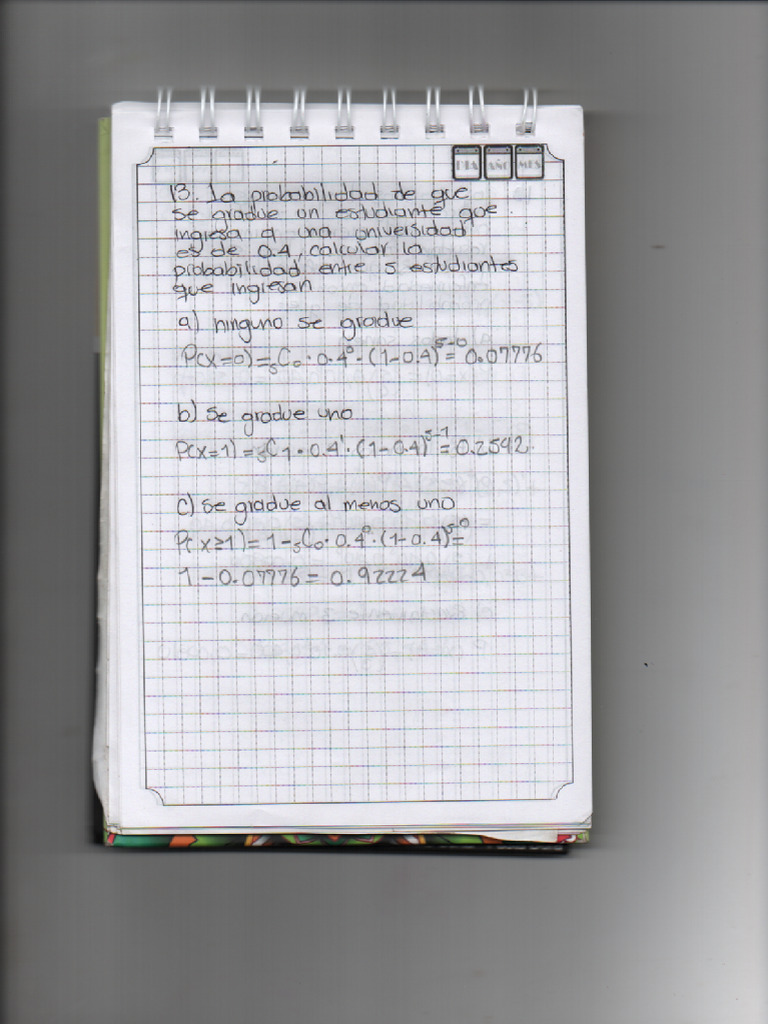 DIA AÑO MES
13. La probabilidad de que
se gradue un estudiante que
ingresa a una universidad
es de 0.4, calcular la
probabilidad entre 5 estudiantes
que ingresan
a) ninguno se gradue
P(x=0)=₅C₀·0.4⁰·(1-0.4)⁵⁻⁰=0.07776
b) se gradue uno
P(x=1)=₅C₁·0.4¹·(1-0.4)⁵⁻¹=0.2592
c) se gradue al menos uno
P(x≥1)=1-₅C₀·0.4⁰·(1-0.4)⁵⁻⁰=
1-0.07776=0.92224